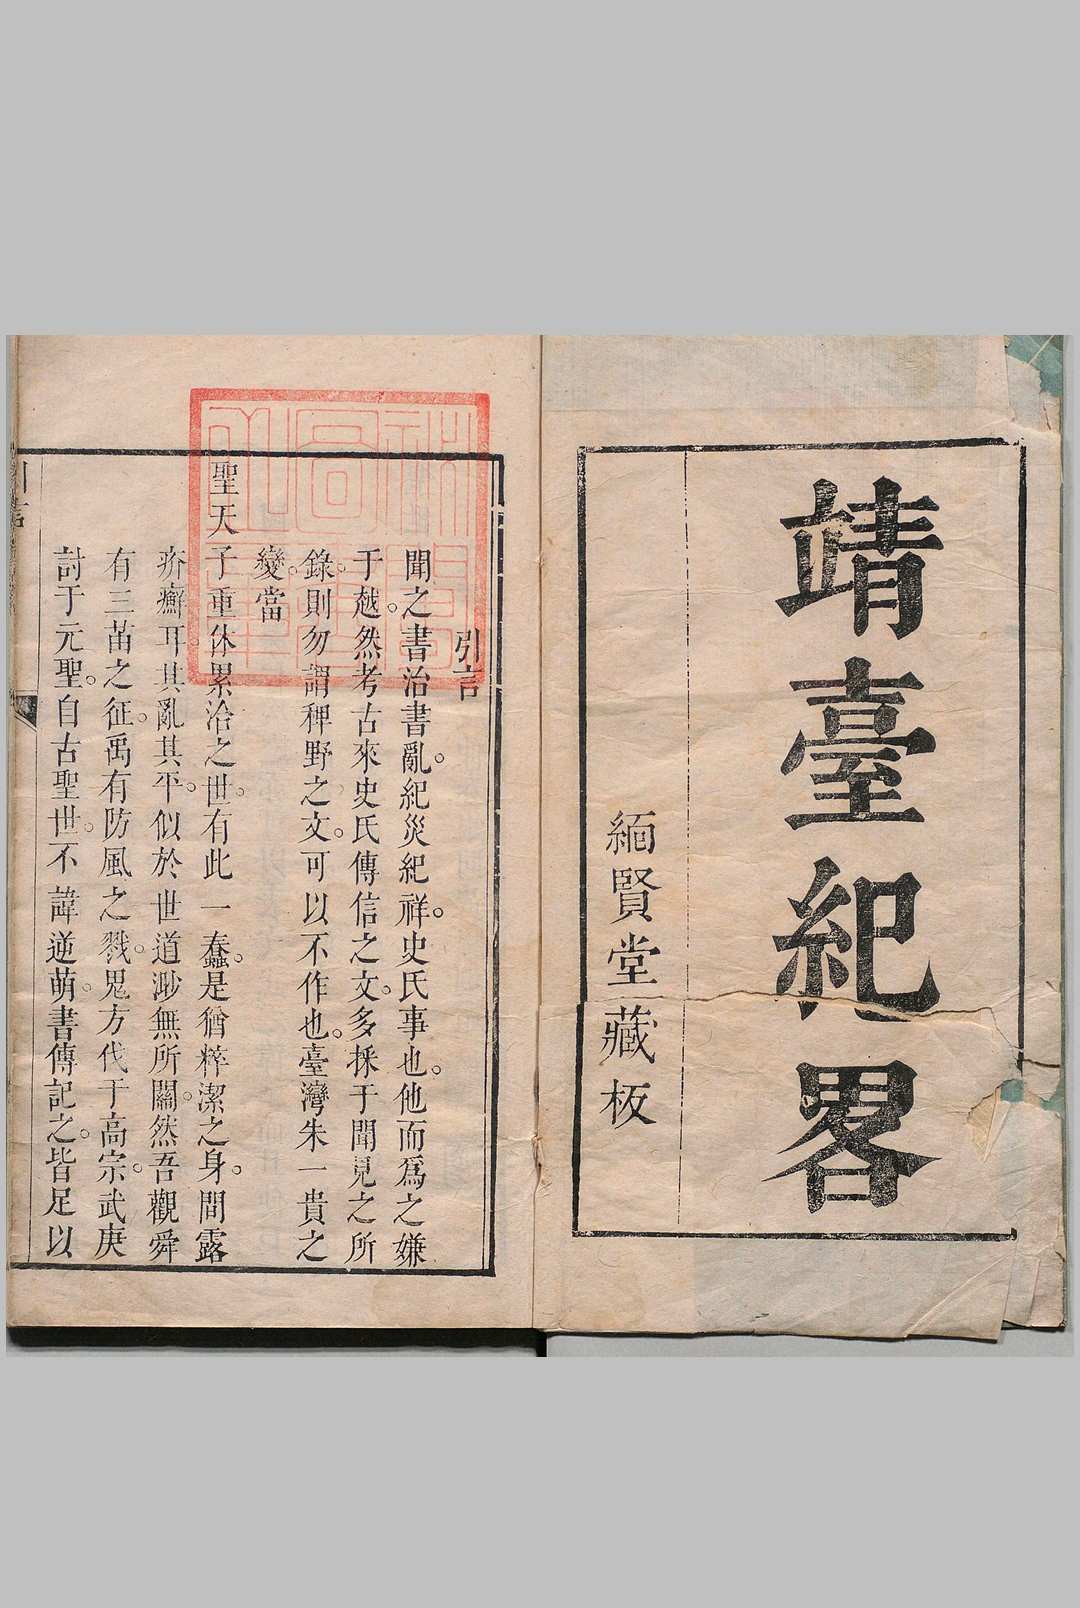 靖臺紀畧
緬賢堂藏板
引言
聞之書治書亂紀災紀祥史氏事也他而爲之嫌
于越然考古來史氏傳信之文多採于聞見之所
錄則勿謂稗野之文可以不作也臺灣朱一貴之
變當
聖天子重休累洽之世有此一蠢是猶粹潔之身間露
疥癬耳其亂其平似於世道渺無所關然吾觀舜
有三苗之征禹有防風之戮鬼方伐于高宗武庚
討于元聖自古聖世不諱逆萌書傳記之皆足以